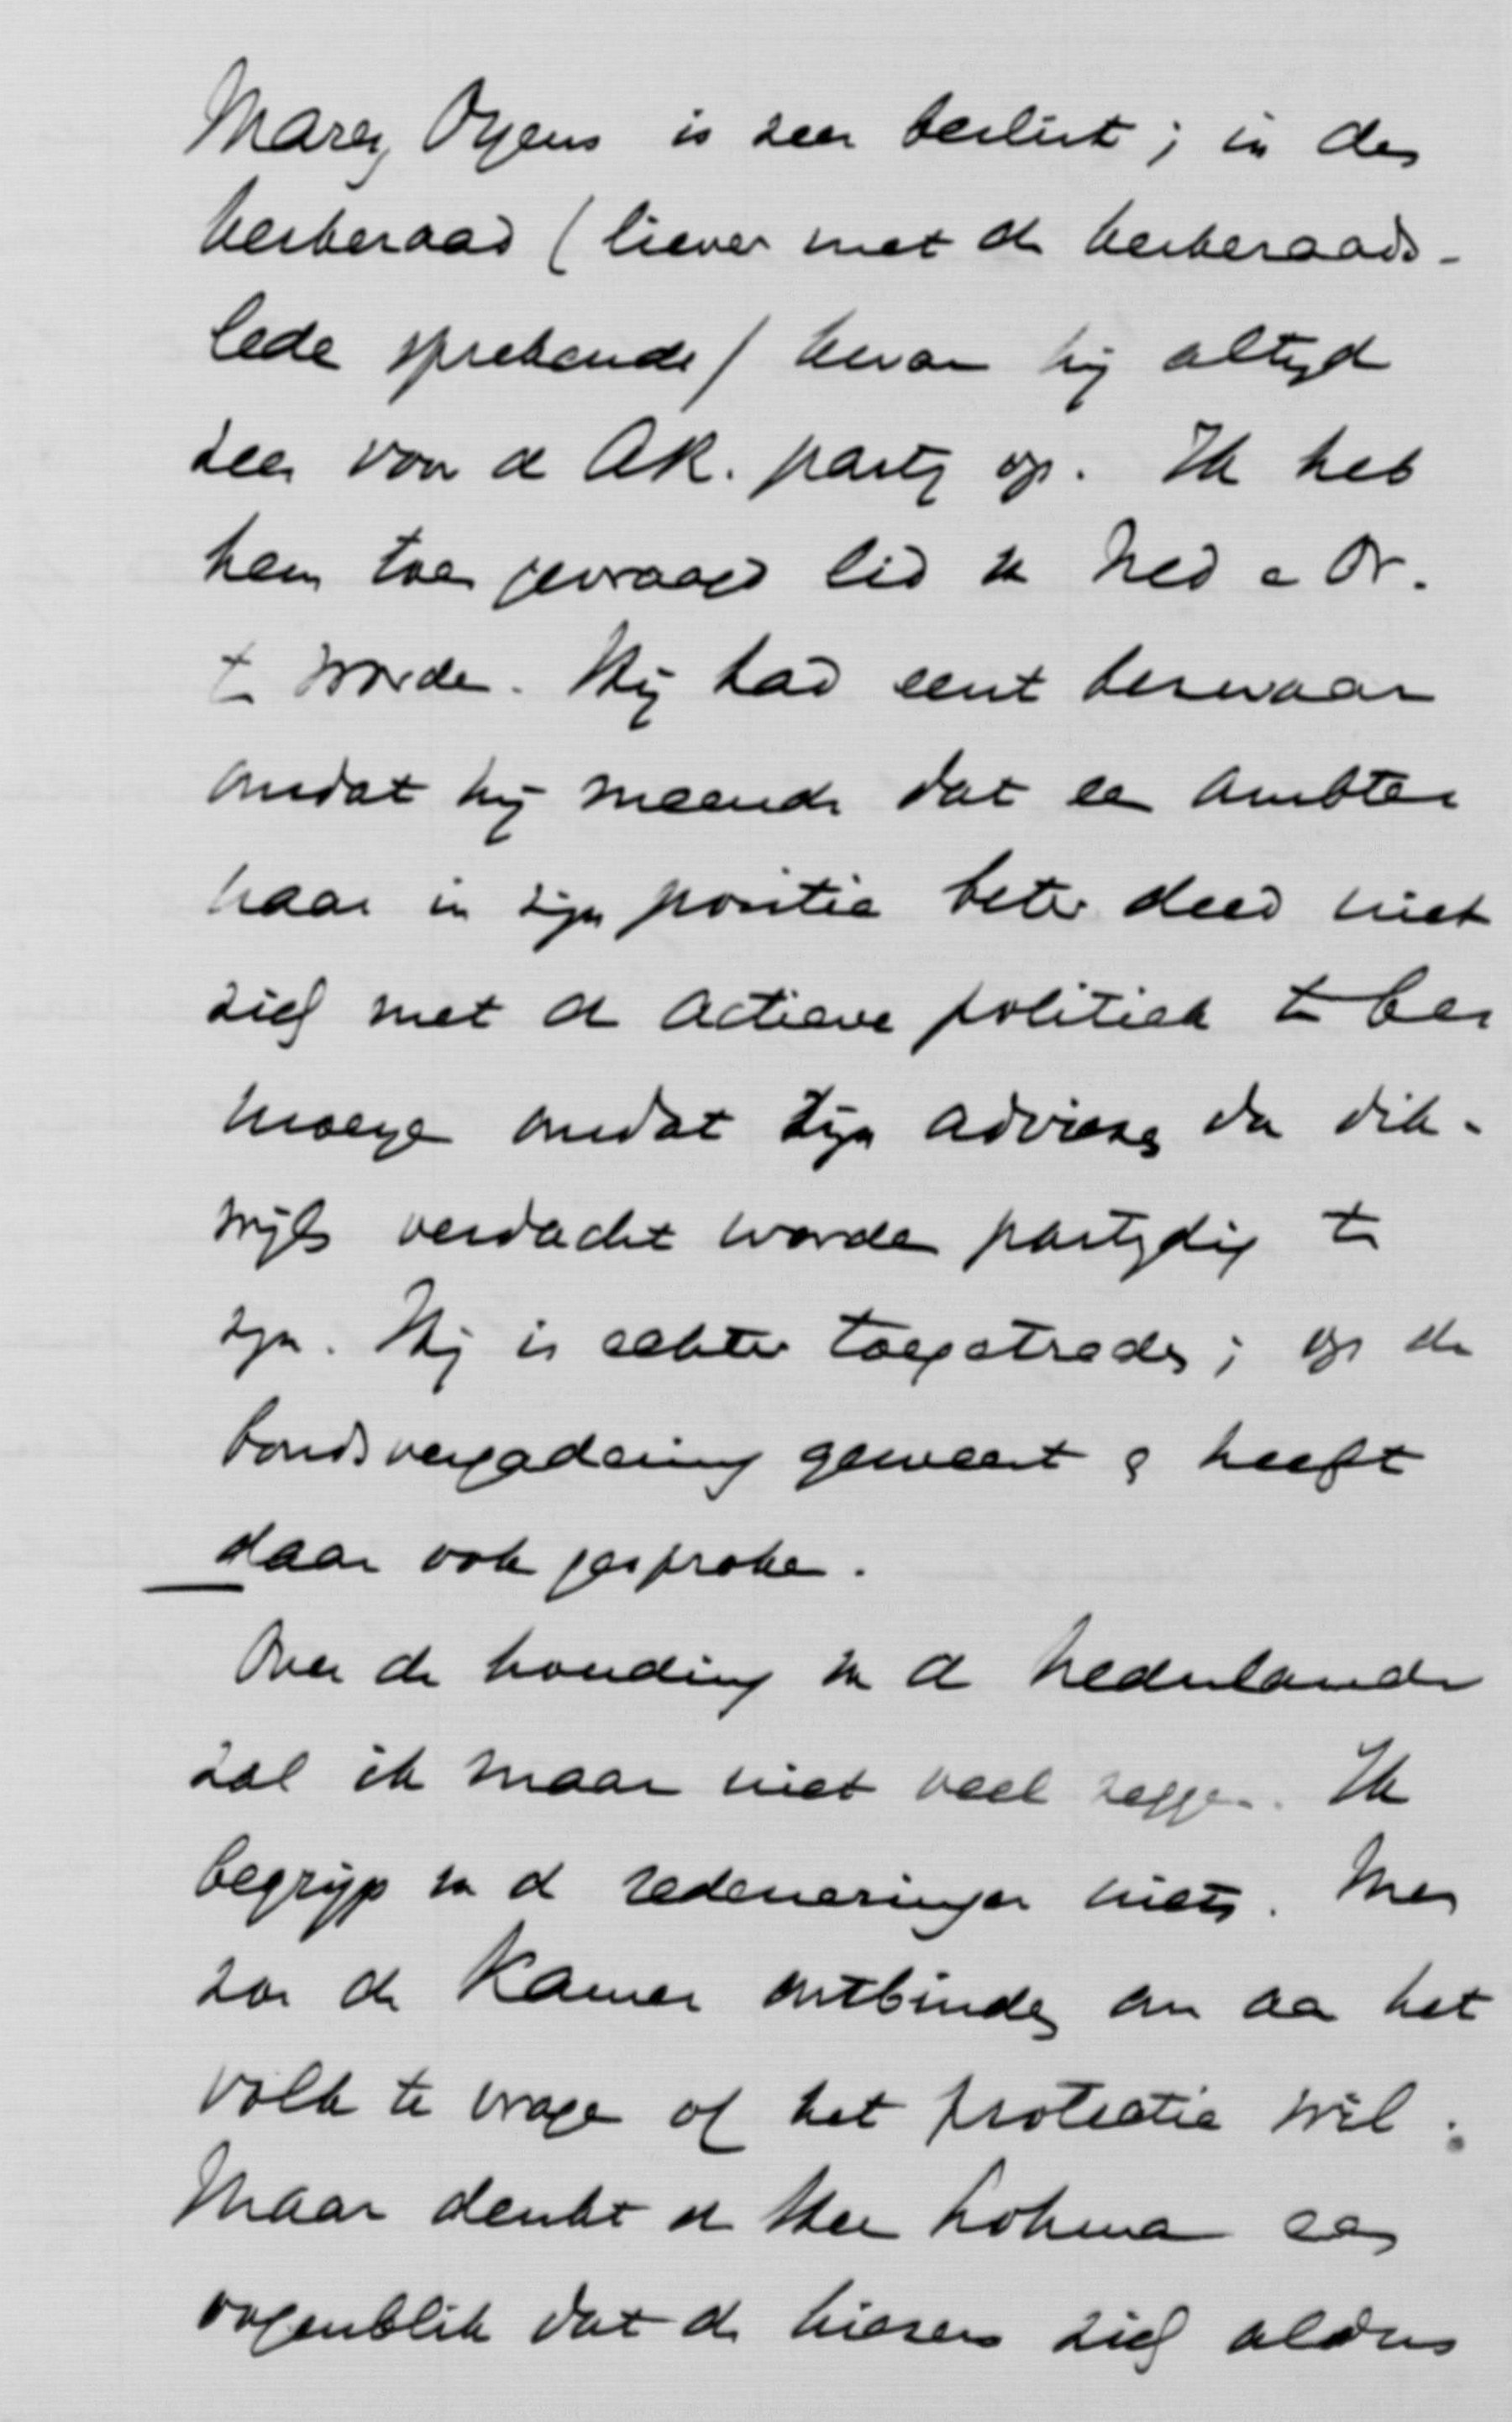 Marez Oyens is zeer beslist; in den
kerkeraad (liever met de kerkeraads-
lede sprekende) kwam hij altijd
zeer voor de AR. partij op. Ik heb
hem toen gevraagd lid v Ned e Or.
te worden. Hij had eerst bezwaar
omdat hij meende dat een ambte
naar in zijn positie beter deed niet
zich met de actieve politiek te be
moeye omdat zijn adviezen dan dik-
wijls verdacht worden partijdig te
zyn. Hij is echter toegetreden; op de
bondsvergadering geweest & heeft
daar ook gesproken.
Over de houding v d Nederlander
zal ik maar niet veel zeggen. Ik
begrijp v d redeneeringen niets. Men
zou de Kamer ontbinden om aan het
volk te vragen of het protectie wil;
Maar denkt de Heer Lohman een
oogenblik dat de kiezers zich aldus